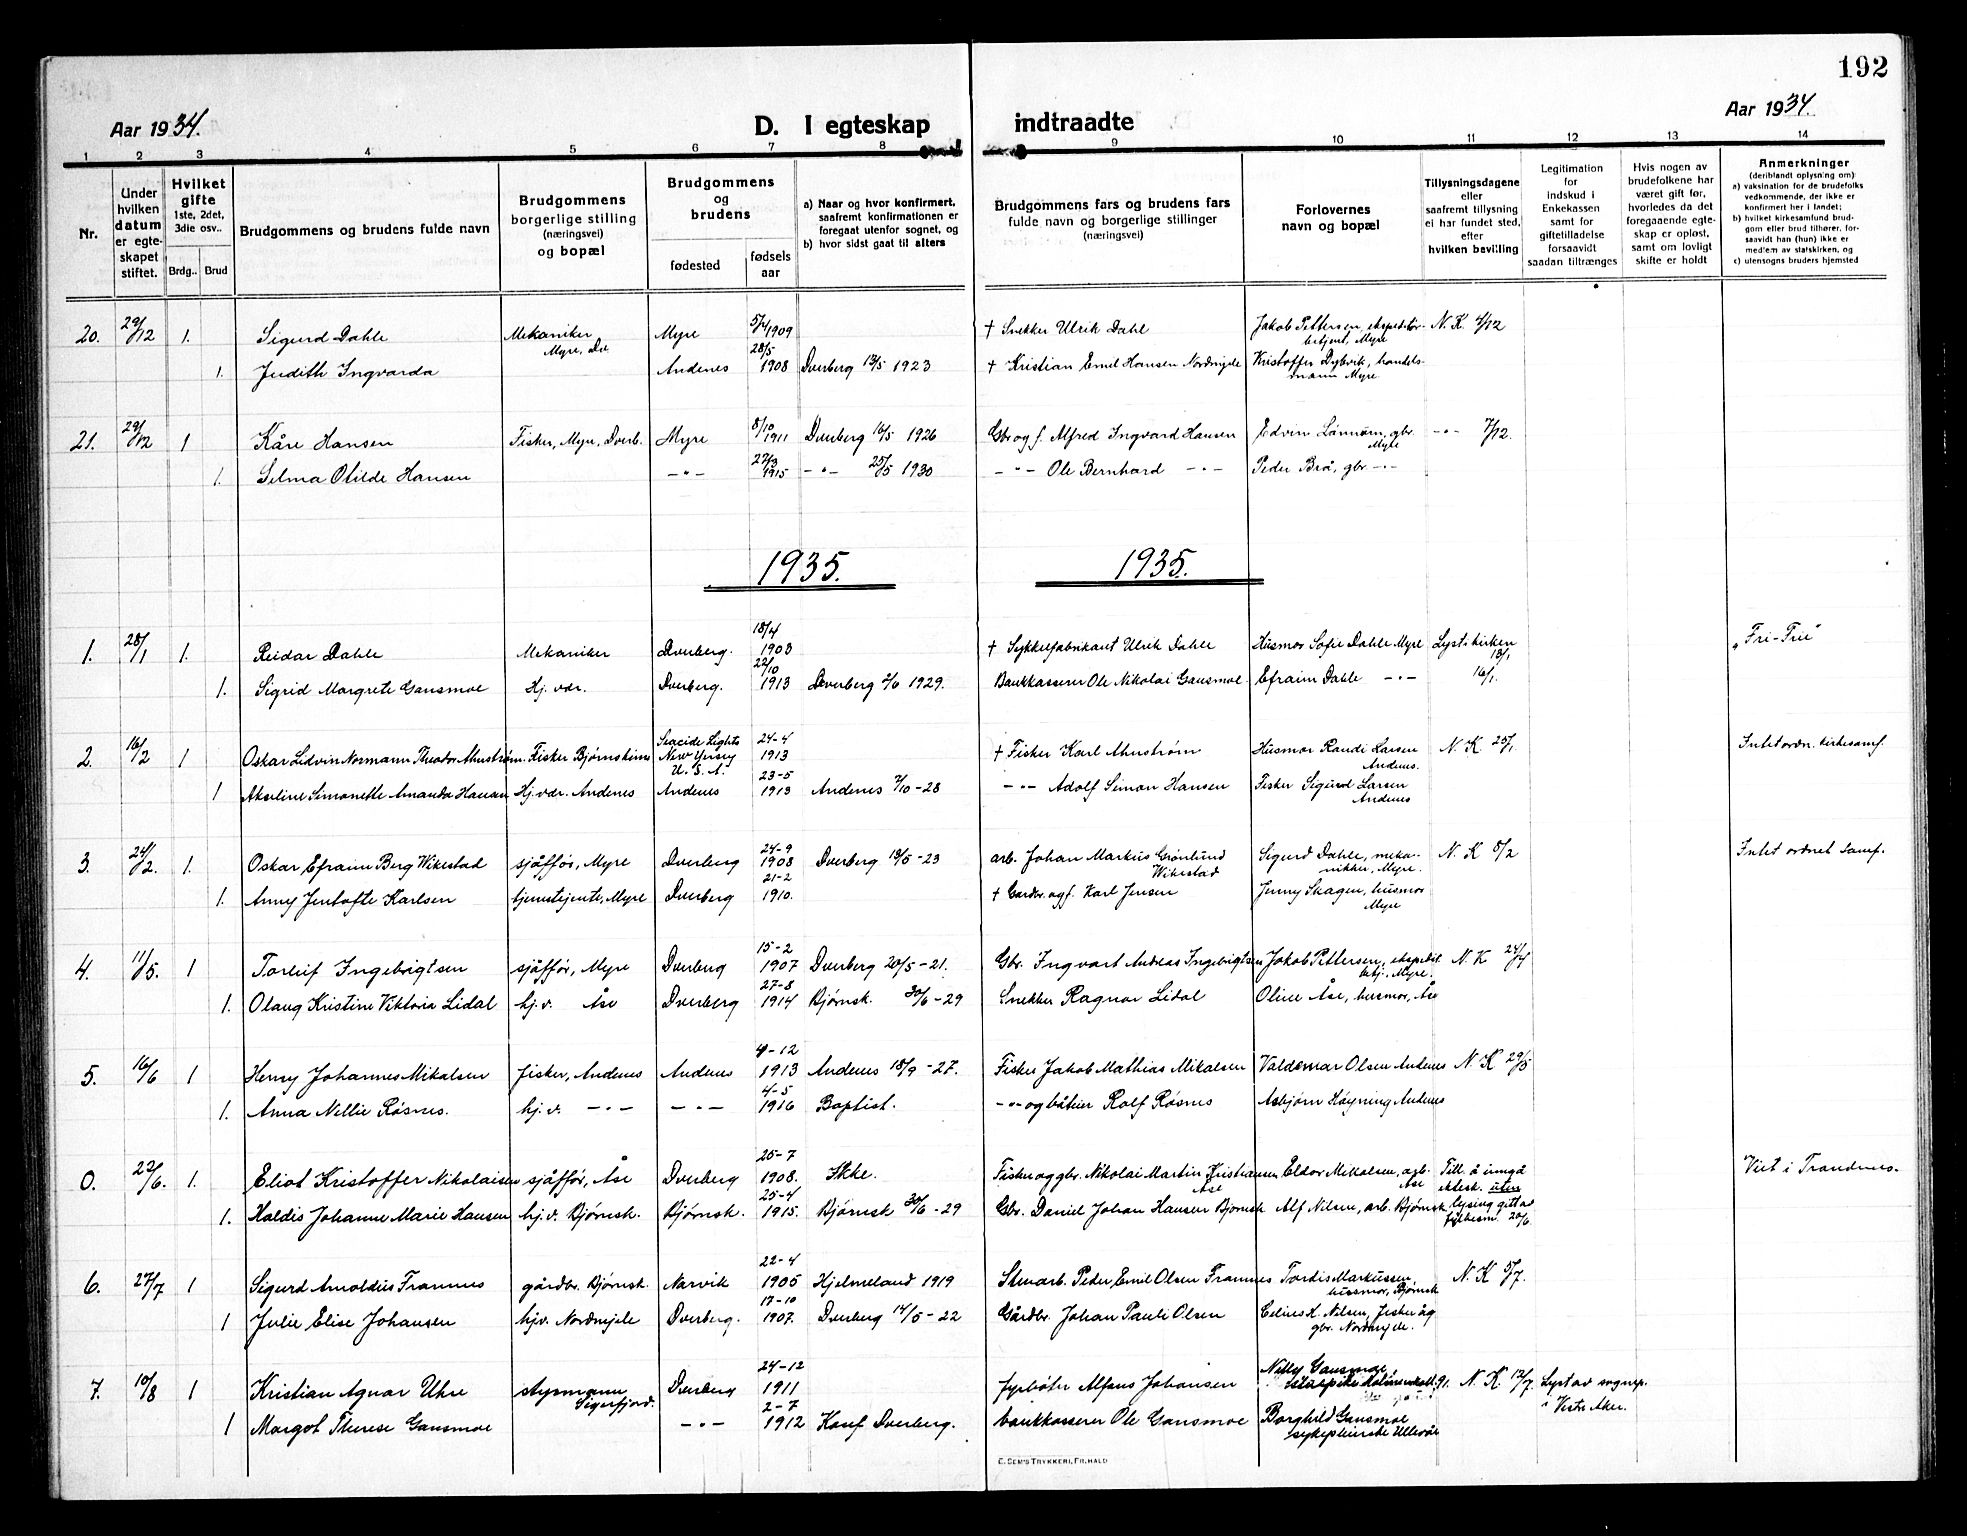 192
Aar 1934.
D. I egteskap
indtraadte
Aar 1934.
1 2 3 4 5 6 7 8 9 10 11 12 13 14
Nr.
Under hvilken datum er egteskapet stiftet.
Hvilket gifte
1ste, 2det, 3die osv..
Brdg.. Brud
Brudgommens og brudens fulde navn
Brudgommens borgerlige stilling (næringsvei) og bopæl
Brudgommens og brudens
fødested
fødsels aar
a) Naar og hvor konfirmert, saafremt konfirmationen er foregaat utenfor sognet, og
b) hvor sidst gaat til alters
Brudgommens fars og brudens fars fulde navn og borgerlige stillinger (næringsvei)
Forlovernes navn og bopæl
Tillysningsdagene eller saafremt tillysning ei har fundet sted, efter hvilken bevilling
Legitimation for indskud i Enkekassen samt for giftetilladelse forsaavidt saadan tiltrænges
Hvis nogen av brudefolkene har været gift før, hvorledes da det foregaaende egteskap er opløst, samt om lovligt skifte er holdt
Anmerkninger
(deriblandt oplysning om)
a) vaksination for de brudefolks vedkommende, der ikke er konfirmert her i landet;
b) hvilket kirkesamfund brudgom eller brud tilhører, forsaavidt han (hun) ikke er medlem av statskirken, og
c) utensogns bruders hjemsted
20. 29/12 1. Sigurd Dahle Mekaniker Myre, Dv. Myre 5/4 1909 † Snekker Ulrik Dahl Jakob Pettersen, ekspeditør-betjent, Myre N. K. 4/12
1. Judith Ingvarda Andenes 28/5 1908 Dverberg 13/5 1923 † Kristian Emil Hansen Nordmjele Kristoffer Dybvik, handelsmann Myre
21. 29/12 1 Kåre Hansen Fisker, Myre, Dverb. Myre 8/10 1911 Dverberg 16/5 1926 Gbr og f. Alfred Ingvard Hansen Edvin Lønnum, gbr. Myre -"- 7/12.
1. Selma Otilde Hansen -"- 27/3 1915 -"- 25/5 1930 -"- Ole Bernhard -"- Peder Brå, gbr -"-
1935. 1935.
1. 28/1 1. Reidar Dahle Mekaniker Dverberg. 18/4 1903 † Sykkelfabrikant Ulrik Dahle Husmor Sofie Dahle Myre Lyst i kirken 13/1 "Fri-Frie"
1. Sigrid Margrete Gansmoe Hj. vdr. Dverberg. 22/10 1913 Dverberg 2/6 1929. Bankkasserer Ole Nikolai Gansmoe Efraim Dahle -"- 16/1.
2. 16/2 1 Oskar Lidvin Normann Theodor Ahnstrøm. Fisker Bjørnskinn Seacide Lights New Yersey U. S. A. 24-4 1913 † Fisker Karl Ahnstrøm Husmor Randi Larsen Andenes. N. K 25/1. Intet ordn. kirkesamf.
1 Akseline Simonette Amanda Hansen Hj. vdr. Andenes Andenes 23-5 1913 Andenes 7/10-28 -"- Adolf Simon Hansen Fisker Sigurd Larsen Andenes
3. 24/2. 1. Oskar Efraim Berg Wikestad sjåffør, Myre Dverberg 24-9 1903 Dverberg 13/5-23 arb. Johan Markus Grønlund Wikestad Sigurd Dahle, mekanikker, Myre. N. K 5/2 Intet ordnet samf.
1. Anny Jentofte Karlsen tjenestejente, Myre Dverberg 21-2 1910. † Gardbr. og f. Karl Jensen Jenny Skagen, husmor Myre
4. 11/5. 1 Torleif Ingebrigtsen sjåffør, Myre Dverberg 15-2 1907 Dverberg 20/5-21. Gbr. Ingvart Andreas Ingebrigtsen Jakob Pettersen, ekspedit. betj., Myre. N. K 24/4
1. Olaug Kristine Viktoria Lidal hj. v. Åse Dverberg 27-8 1914 Bjørnsk. 30/6-29 Snekker Ragnar Lidal Oline Åse, husmor, Åse
5. 16/6 1 Henry Johannes Mikalsen fisker, Andenes Andenes 4-12 1913 Andenes 18/9-27. Fisker Jakob Mathias Mikalsen Valdemar Olsen Andenes N. K 29/5
1. Anna Nellie Røsnes. hj. v. -"- -"- 4-5 1916 Baptist. -"- og båteier Rolf Røsnes Asbjørn Høyning Andenes
0. 22/6. 1. Eliot Kristoffer Nikolaisen sjåffør, Åse Dverberg 25-7 1908. Ikke. Fisker og gbr. Nikolai Martin Kristiansen Åse Eldor Mikalsen, arb. Åse Till. å inngå ektesk. uten Viet i Trondenes.
1. Haldis Johanne Marie Hansen hj. v. Bjørnsk. Bjørnsk. 25-4 1915. Bjørnsk 30/6-29 Gbr. Daniel Johan Hansen Bjørnsk Alf Nilsen, arb. Bjørnsk lysing gitt av fylkesm. 20/6
6. 27/7 1 Sigurd Arnoldus Framnes gårdbr. Bjørnsk. Narvik 22-4 1905 Hjelmeland 1919 Stenarb. Peder Emil Olsen Framnes Tordis Markussen, husmor, Bjørnsk N. K 5/7.
1 Julie Elise Johansen hjv. Nordmjele Dverberg. 17-10 1907. Dverberg 14/5-22 Gårdbr. Johan Pauli Olsen Celius K. Nilsen, fisker og gbr. Nordmjele.
7. 10/8 1 Kristian Agnar Uhre styrmann Sigerfjord. Dverberg 24-12 1911 fyrbøter Alfons Johansen Nelly Gansmoe N. K. 12/7 Lyst av sognep. i Vestre Aker.
1 Margot Therese Gansmoe -"- 2-7 1912 Konf Dverberg. bankkasserer Ole Gansmoe Borghild Gansmoe sykepleierske Ullevål
E. SEM'S TRYKKERI, FR.HALD